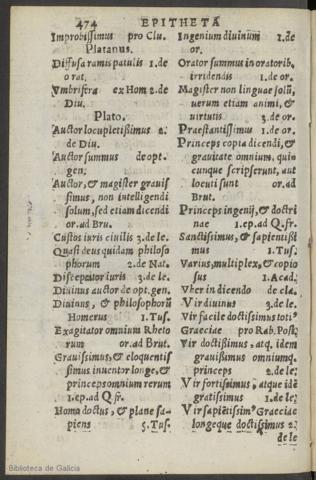 474 EPITHETA
Improbissimus pro Clu.
Platanus.
Diffusa ramis patulis 1. de
orat.
Vmbrifera ex Hom 2. de
Diu.
Plato.
Auctor locupletissimus 2.
de Diu.
Auctor summus de opt.
gen.
Auctor, & magister grauis
simus, non intelligendi
solum, sed etiam dicendi
or. ad Bru.
Custos iuris ciuilis 3. de le.
Quasi deus quidam philoso
phorum 2. de Nat.
Disceptator iuris 3. de le.
Diuinus auctor de opt. gen.
Diuinus, & philosophorũ
Homerus 1. Tus.
Exagitator omnium Rheto
rum or. ad Brut.
Grauissimus, & eloquentis
simus inuentor longe, &
princeps omnium rerum
1. ep. ad Q. fr.
Homo doctus, & plane sa-
piens 5. Tus.
Ingenium diuinũm 1. de
or.
Orator summus in oratorib.
irridendis 1. de or.
Magister non linguae solũ,
uerum etiam animi, &
uirtutis 3. de or.
Praestantissimus 1. de or.
Princeps copia dicendi, &
grauitate omnium, qui
cunque scripserunt, aut
locuti sunt or. ad
Brut.
Princeps ingenij, & doctri
nae 1. ep. ad Q. fr.
Sanctissimus, & sapientissi
mus 1. Tus.
Varius, multiplex, & copio
sus 1. Acad.
Vber in dicendo de cla.
Vir diuinus 3. de le.
Vir facile doctissimus totiꝰ
Graeciae pro Rab. Post.
Vir doctissimus, atq. idem
grauissimus omniumq.
princeps 2. de le.
Vir fortissimus, atque idẽ
gratissimus 1. de le.
Vir sapiẽtissimꝰ Graeciae
longeque doctissimus 2.
de le
Biblioteca de Galicia